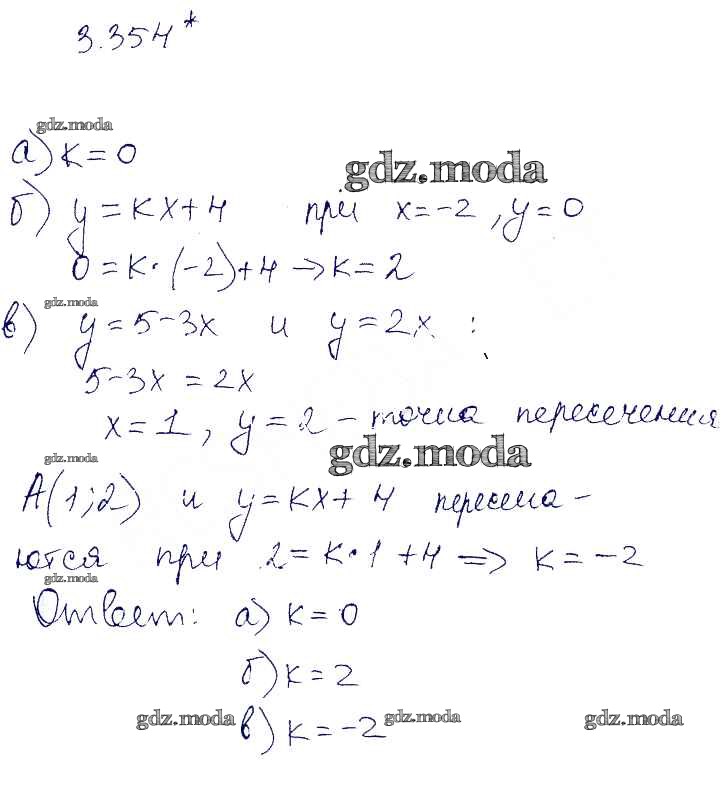 3.354*
gdz.moda
а) k=0
gdz.moda
б) y=kx+4 при x=-2, y=0
0=k·(-2)+4→k=2
gdz.moda
в) y=5-3x и y=2x :
5-3x=2x
x=1, y=2 - точка пересечения
gdz.moda
gdz.moda
A(1;2) и y=kx+4 пересека-
ются при 2=k·1+4 => k=-2
gdz.moda
Ответ: а) k=0
б) k=2
gdz.moda в) k=-2 gdz.moda gdz.moda